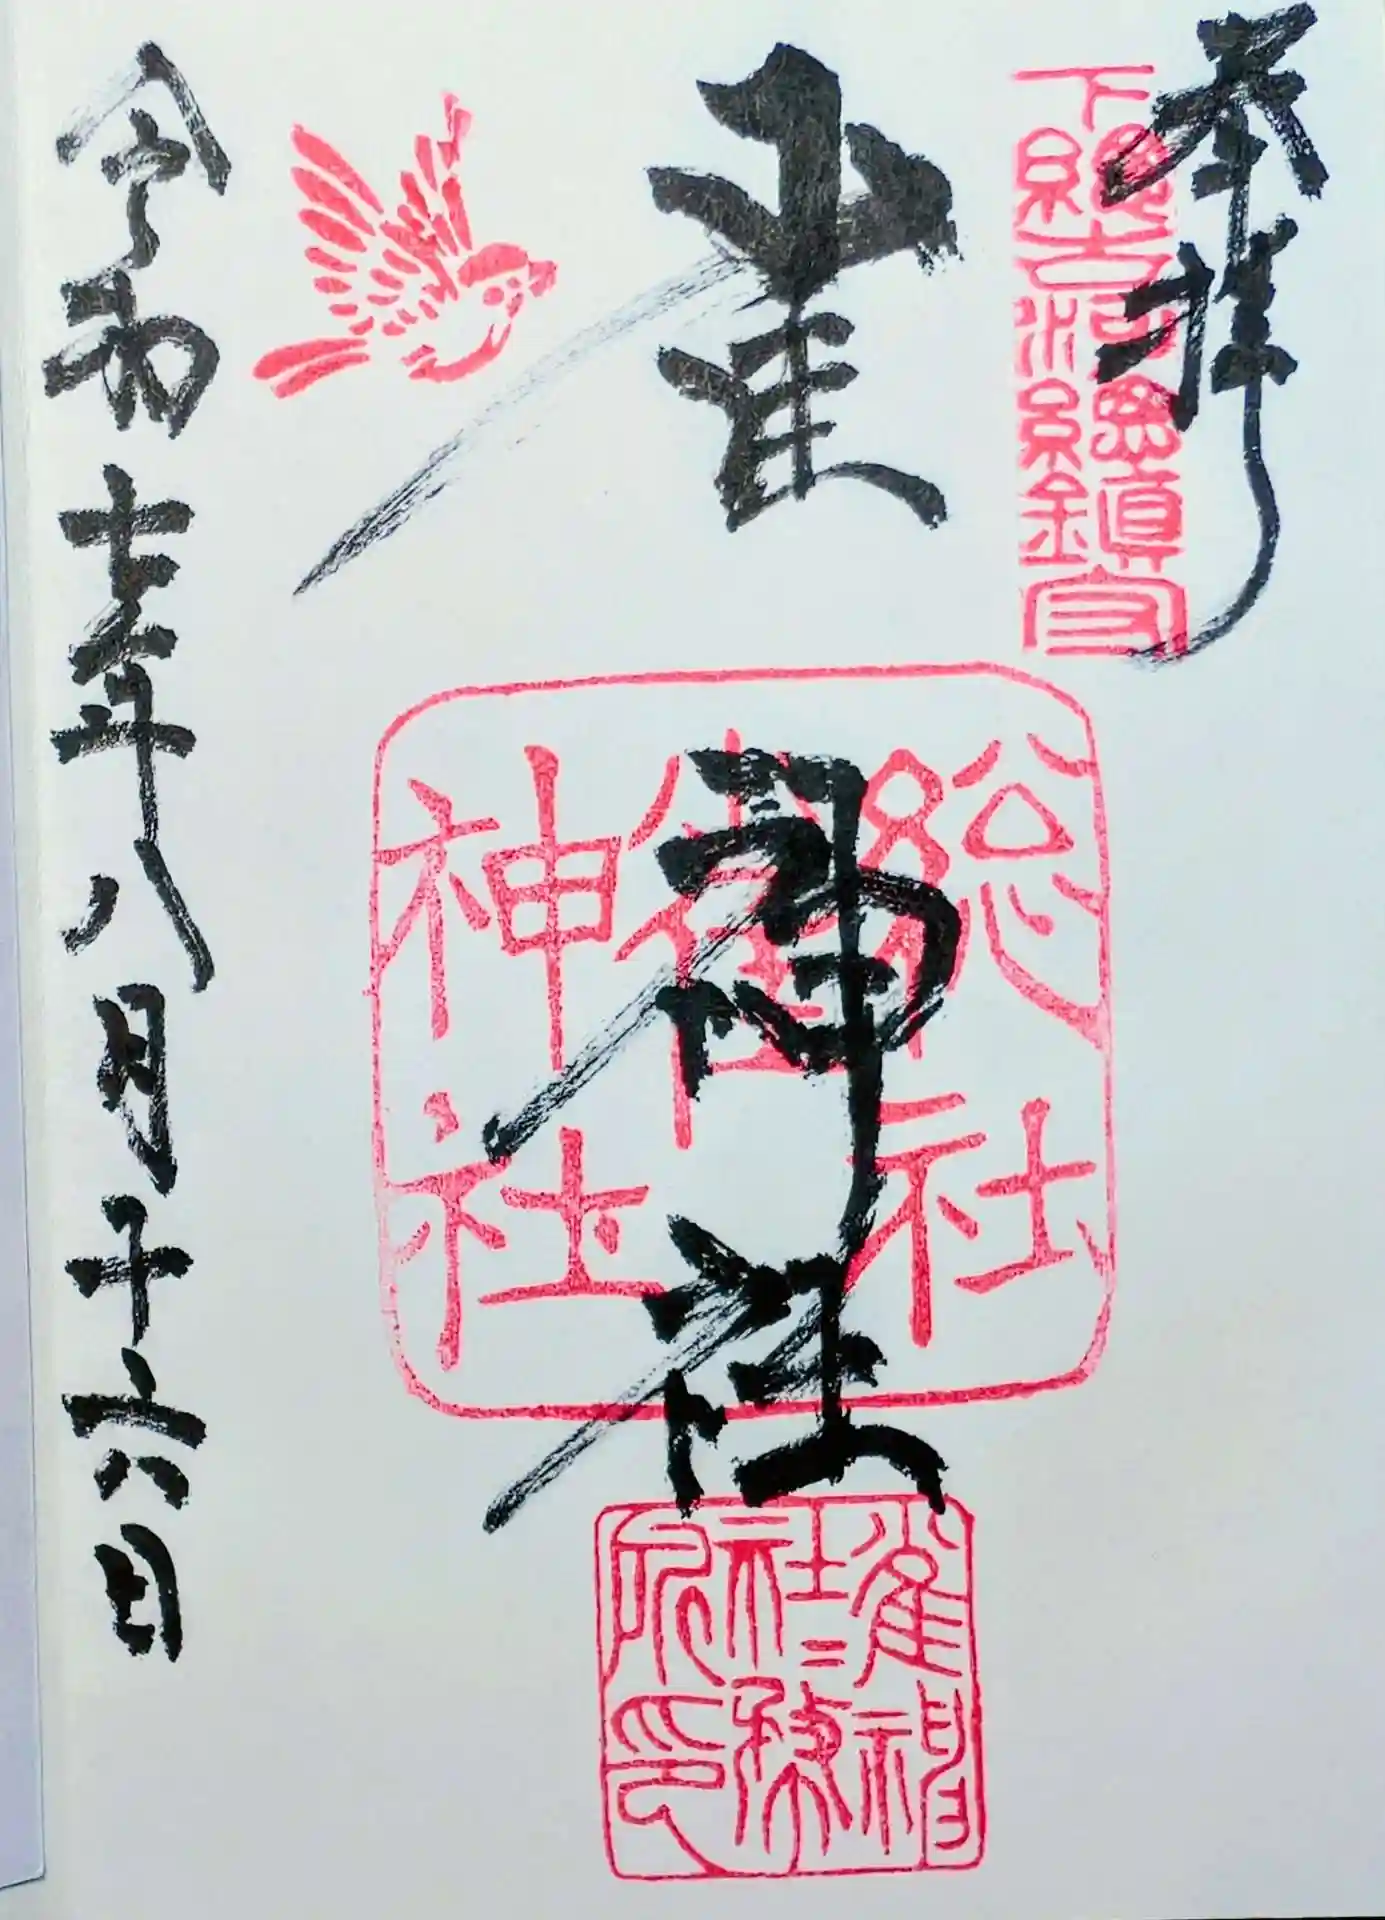 奉拝
下總古河總鎮守
雀神社
総社
雀
神社
雀神
社〻務
所印
令和七年八月十六日